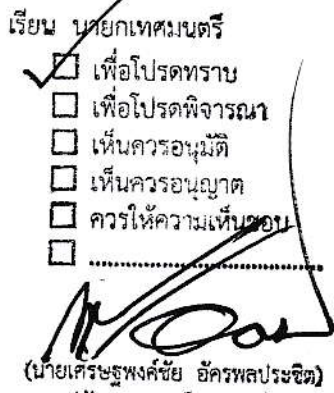 เรียน นายกเทศมนตรี
เพื่อโปรดทราบ
เพื่อโปรดพิจารณา
เห็นควรอนุมัติ
เห็นควรอนุญาต
ควรให้ความเห็นชอบ
(นายเศรษฐพงค์ชัย อัครพลประชิต)